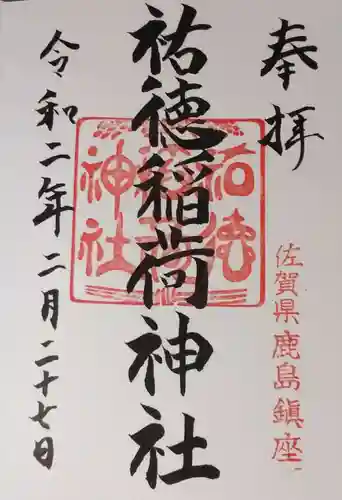 奉拝
佐賀県鹿島鎮座
祐徳稲荷神社
祐徳稲荷神社
令和二年二月二十七日